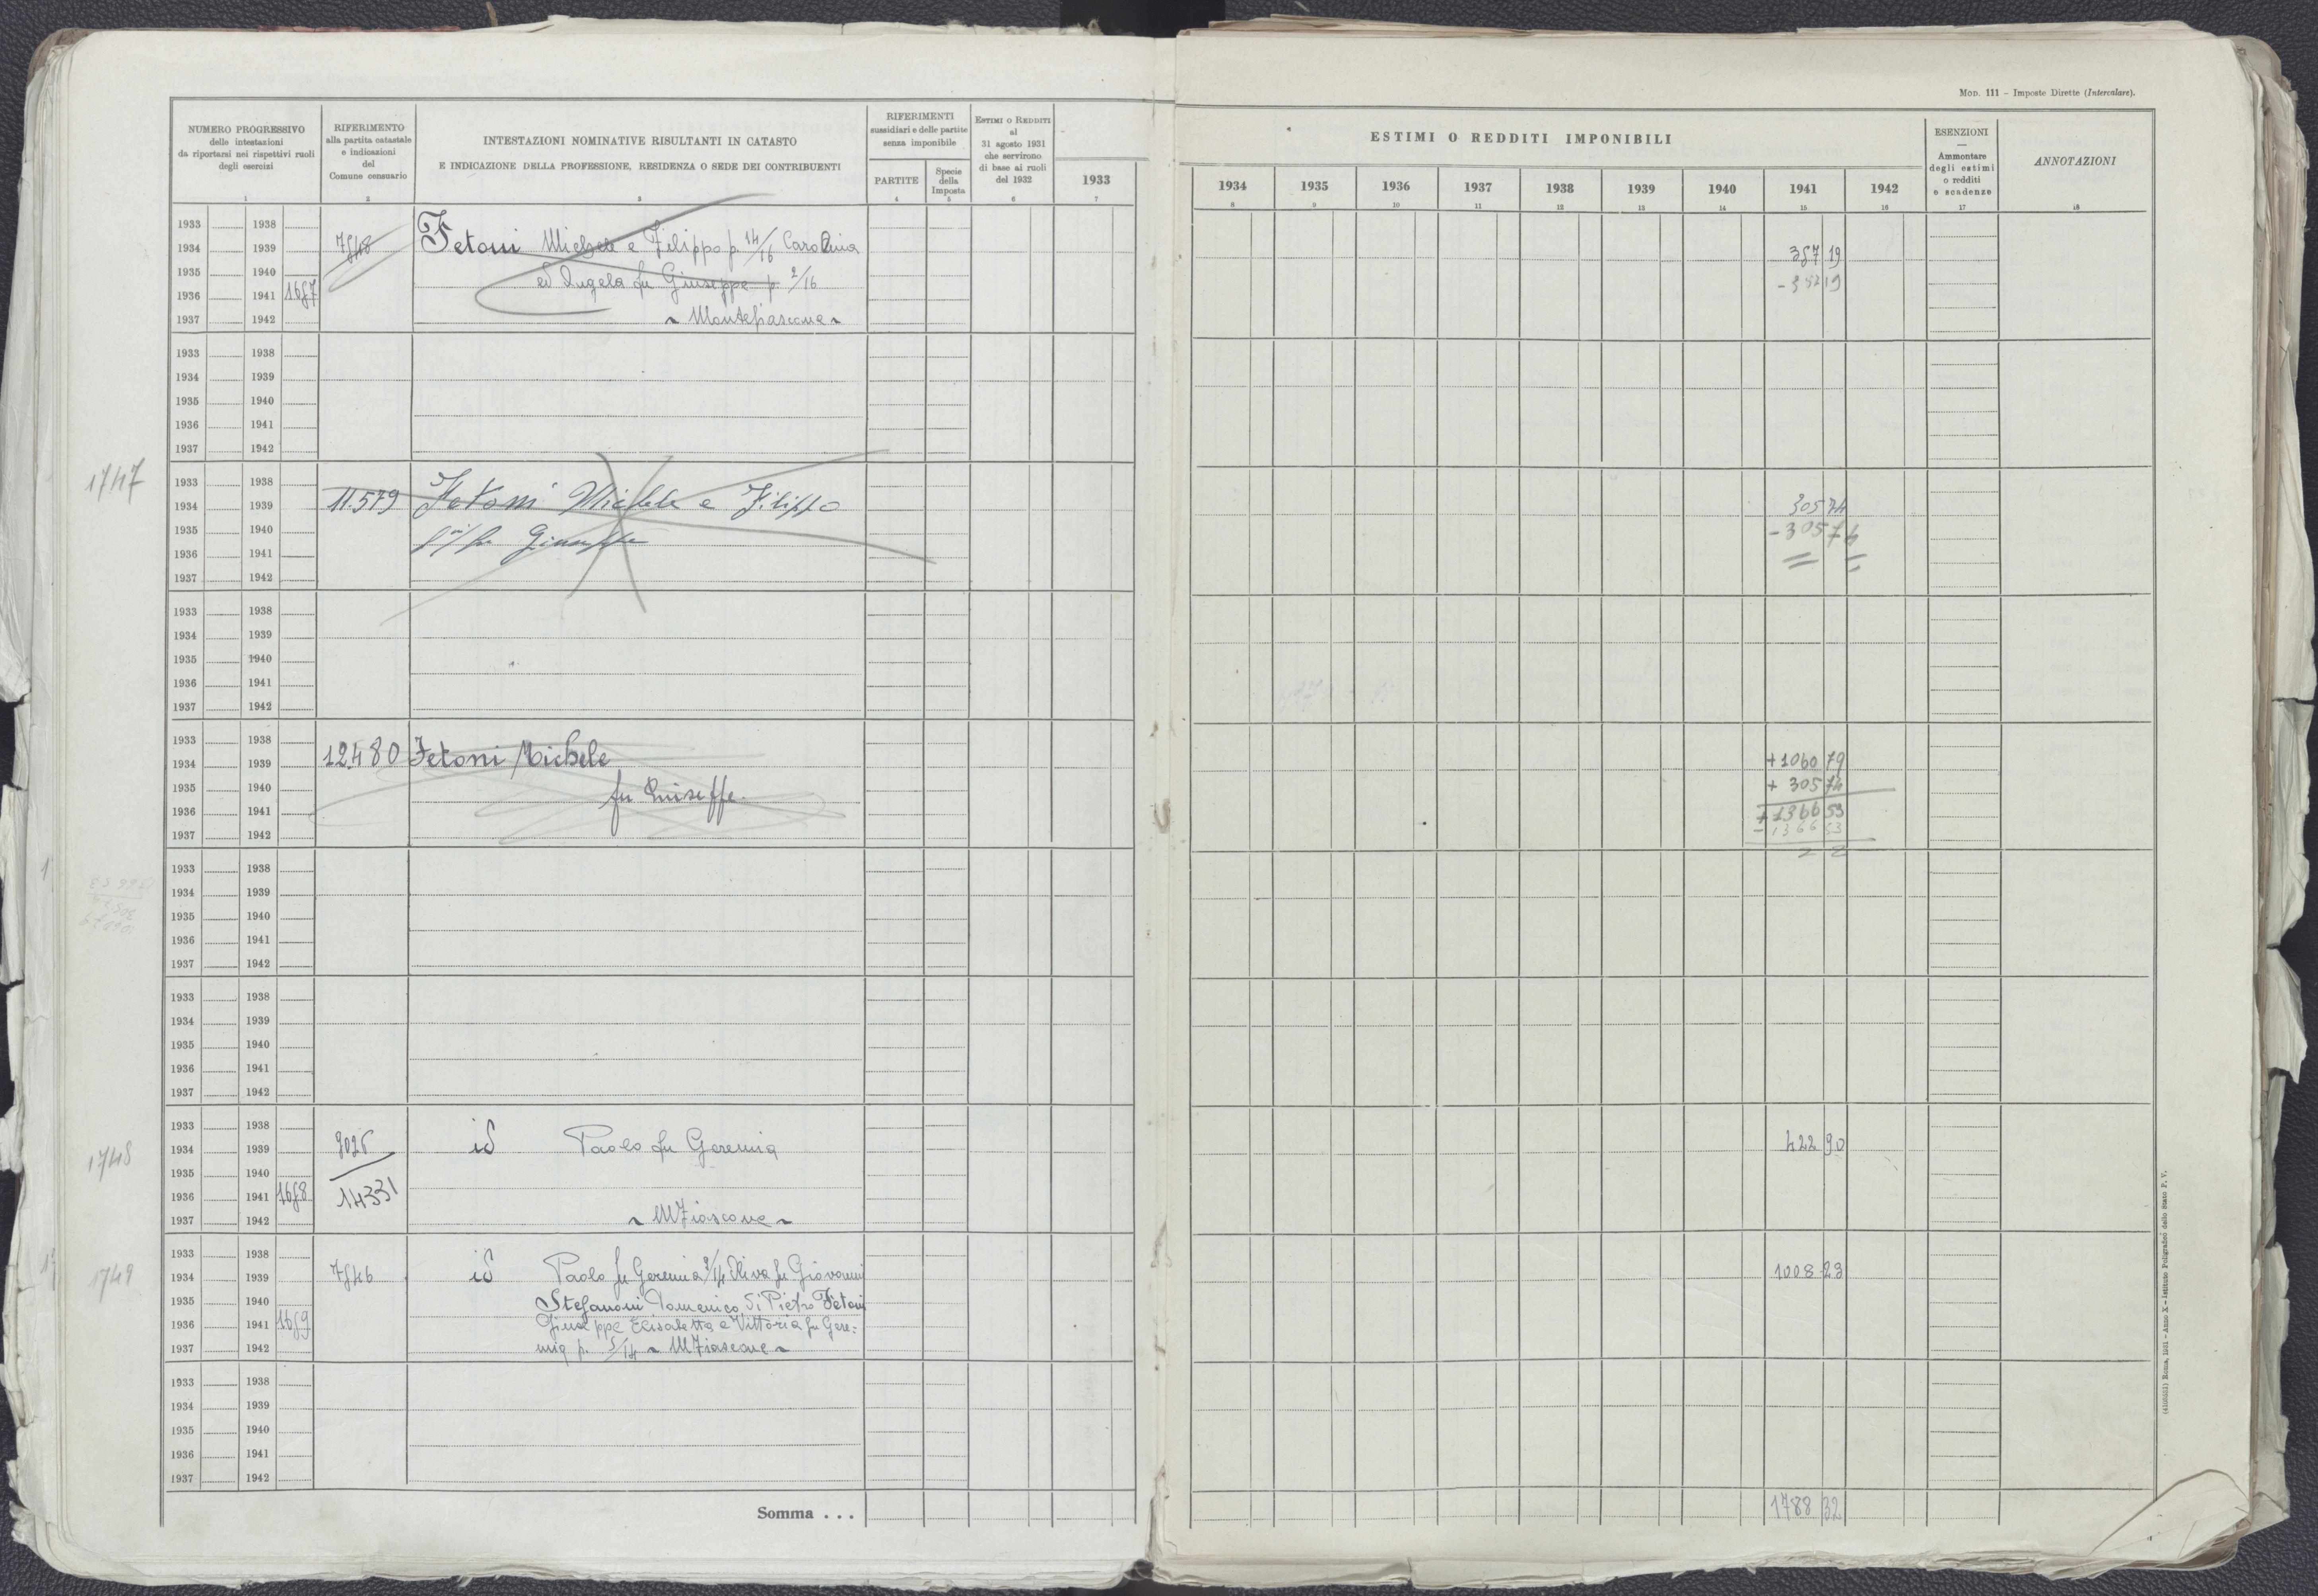 MOD. 111 – Imposte Dirette (Intercalare).
NUMERO PROGRESSIVO
delle intestazioni
da riportarsi nei rispettivi ruoli
degli esercizi
RIFERIMENTO
alla partita catastale
e indicazioni
del
Comune censuario
INTESTAZIONI NOMINATIVE RISULTANTI IN CATASTO
E INDICAZIONE DELLA PROFESSIONE, RESIDENZA O SEDE DEI CONTRIBUENTI
RIFERIMENTI
sussidiari e delle partite
senza imponibile
PARTITE
Specie
della
Imposta
ESTIMI O REDDITI
al
31 agosto 1931
che servirono
di base ai ruoli
del 1932
1933
ESTIMI O REDDITI IMPONIBILI
1934 1935 1936 1937 1938 1939 1940 1941 1942
ESENZIONI
—
Ammontare
degli estimi
o redditi
e scadenze
ANNOTAZIONI
1 2 3 4 5 6 7 8 9 10 11 12 13 14 15 16 17 18
1933 1938
1934 1939 Fetoni Michele e Filippo p. 14/16 Carolina
1935 1940 ed Angela fu Giuseppe p. 2/16
1936 1941
1937 1942 ~ Montefiascone ~
1933 1938
1934 1939
1935 1940
1936 1941
1937 1942
1747
1933 1938
1934 1939 11.579 Fetoni Michele e Filippo 305 74
1935 1940 fu Giuseppe - 305 74
1936 1941
1937 1942
1933 1938
1934 1939
1935 1940
1936 1941
1937 1942
1933 1938
1934 1939 12480 Fetoni Michele + 1060 79
1935 1940 fu Giuseppe + 305 74
1936 1941 + 1366 53
1937 1942 - 1366 53
1933 1938
1934 1939
1935 1940
1936 1941
1937 1942
1933 1938
1934 1939
1935 1940
1936 1941
1937 1942
1748
1933 1938
1934 1939 id Paolo fu Geremia 422 90
1935 1940
1936 1941 14331
1937 1942 ~ MFiascone ~
1749
1933 1938
1934 1939 id Paolo fu Geremia 9/14 Oliva fu Giovanni
1935 1940 Stefanoni Domenico di Pietro Fetoni
1936 1941 Giuseppe Elisabetta e Vittoria fu Gere:
1937 1942 mia p. 5/14 ~ MFiascone ~
1008 23
1933 1938
1934 1939
1935 1940
1936 1941
1937 1942
Somma . . . 1788 32
Roma, 1931 – Anno X – Istituto Poligrafico dello Stato P. V.